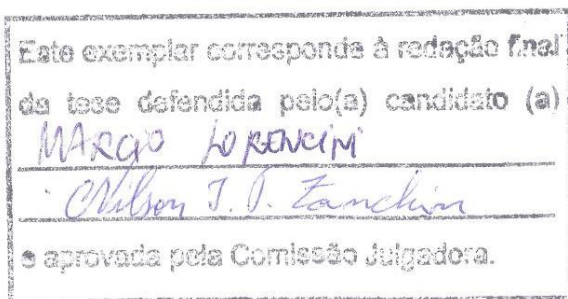 Este exemplar corresponde à redação final
da tese defendida pelo(a) candidato (a)
MARCIO LORENCINI
Nilson I. T. Zanchin
e aprovada pela Comissão Julgadora.